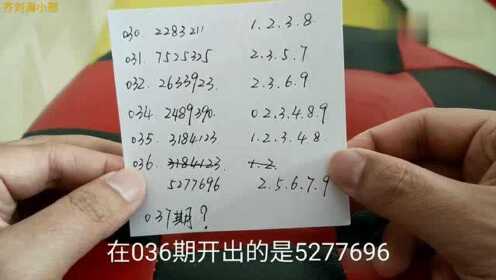 齐刘海小胆
030. 2283211 1.2.3.8
031. 7525325 2.3.5.7
032. 2633923. 2.3.6.9
034. 2489390. 0.2.3.4.8.9
035. 3184123 1.2.3.4.8.
036. 3184123. 1.2
5277696 2.5.6.7.9
037期?
在036期开出的是5277696